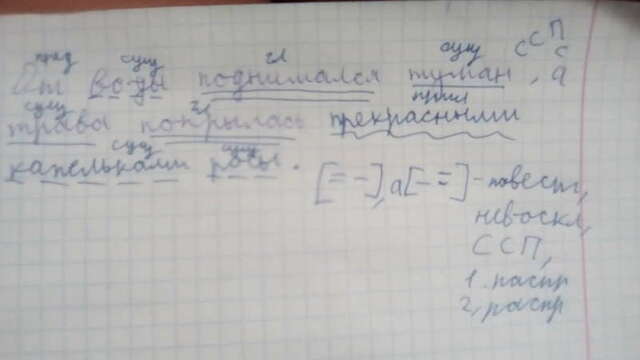 пред сущ гл сущ ССП
с
От воды поднимался туман, а
сущ гл прил
трава покрылась прекрасными
сущ сущ
капельками росы.
[= -], а [- =] - повеств,
невоскл,
ССП,
1. распр
2, распр